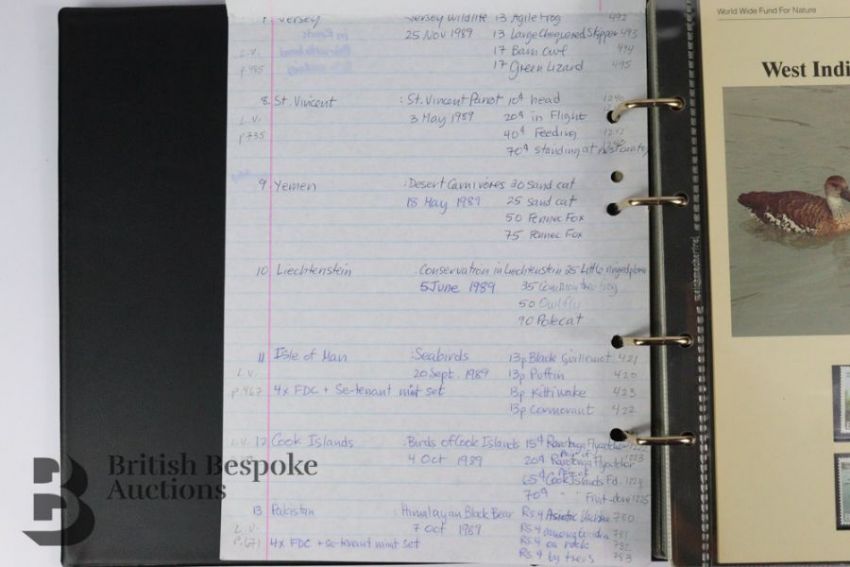 7 Jersey Jersey Wildlife 13 Agile Frog 492
25 Nov 1989 13 Large Chequered Skipper 493
L.V. 17 Barn Owl 494
p.485 17 Green Lizard 495
8 St. Vincent : St. Vincent Parrot 10¢ head
L.V. 3 May 1989 20¢ in Flight
p735 40¢ Feeding
70¢ Standing at
9 Yemen : Desert Carnivores 30 sand cat
18 May 1989 25 sand cat
50 Fennec Fox
75 Fennec Fox
10 Liechtenstein Conservation in Liechtenstein 25 Little ringed plover
5 June 1989 35
50 Owlfly
90 Polecat
11 Isle of Man : Seabirds 13p Black Guillemot 421
L.V. 20 Sept. 1989 13p Puffin 420
p.467 4x FDC + Se-tenant mint set 13p Kittiwake 423
13p Cormorant 422
L.V. 12 Cook Islands : Birds of Cook Islands 15¢ Rarotonga Flycatcher
4 Oct 1989 20¢ Rarotonga Flycatcher 1223
65¢ Cook Islands Fd. 1224
70¢ " " Fruit-dove 1225
13 Pakistan : Himalayan Black Bear Rs.4 780
L.V. 7 Oct 1989 Rs.4 781
P.671 4x FDC + se-tenant mint set Rs 4 on rock 782
Rs 4 by trees 783
World Wide Fund For Nature
West Indi
British Bespoke
Auctions